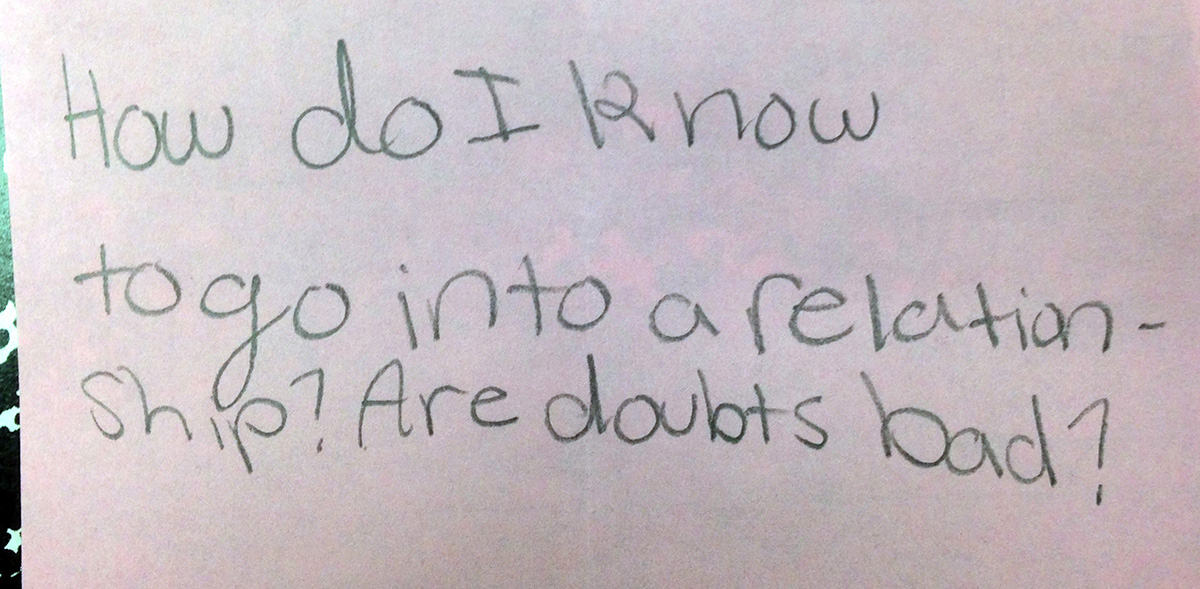 How do I know
to go into a relation-
ship? Are doubts bad?